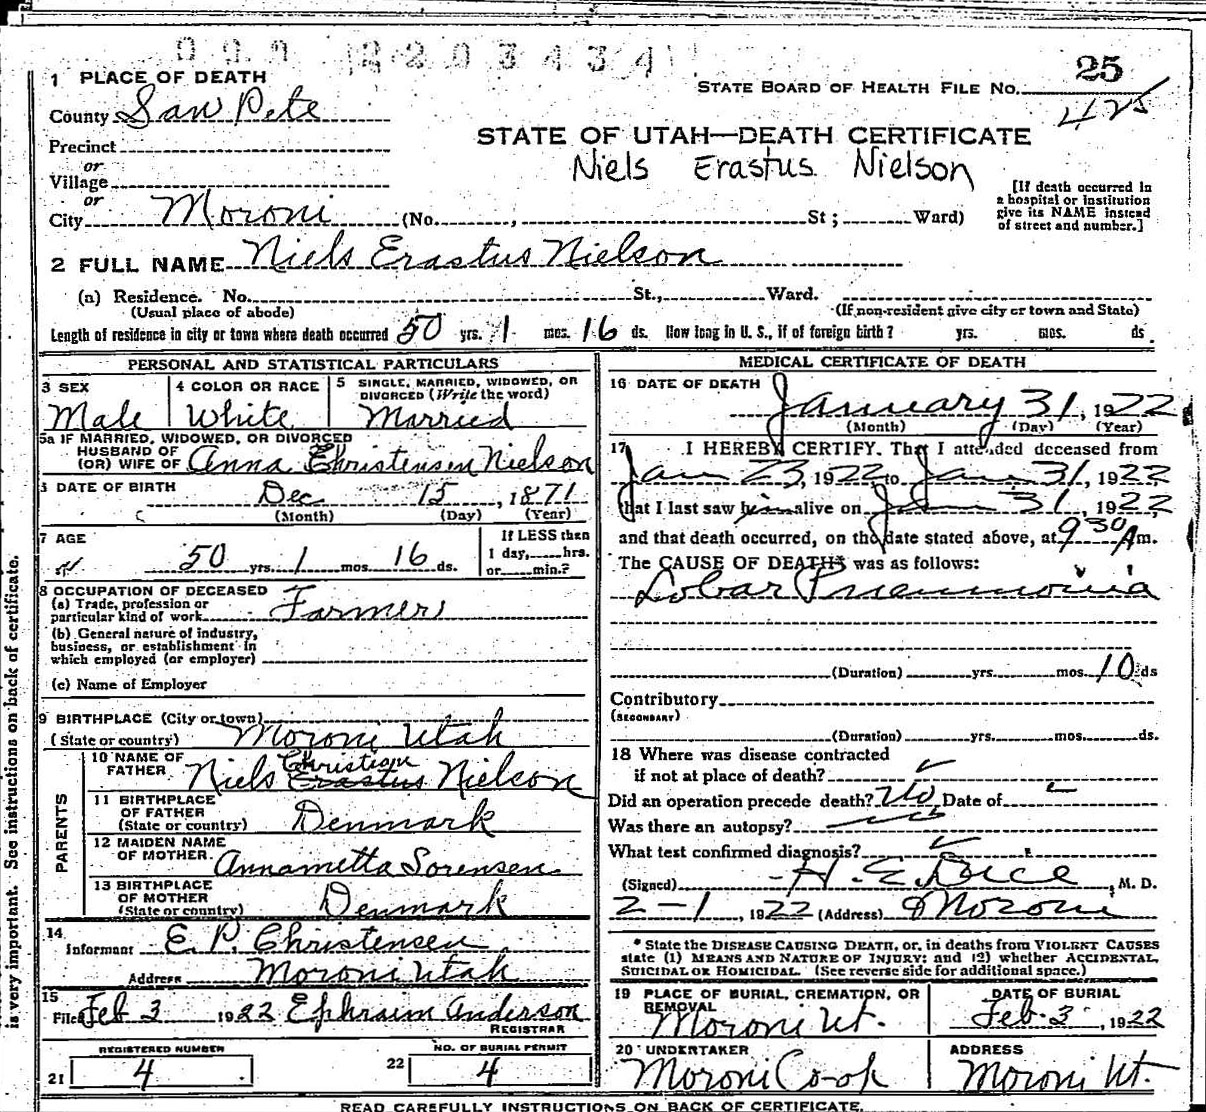 1 PLACE OF DEATH
25
STATE BOARD OF HEALTH FILE No.
425
County San Pete
Precinct
or
Village
or
STATE OF UTAH—DEATH CERTIFICATE
Niels Erastus Nielson
[If death occurred in a hospital or institution give its NAME instead of street and number.]
City Moroni (No. , St ; Ward)
2 FULL NAME Niels Erastus Nielson
(a) Residence. No. St., Ward.
(Usual place of abode) (If non-resident give city or town and State)
Length of residence in city or town where death occurred 50 yrs. 1 mos. 16 ds. How long in U. S., if of foreign birth? yrs. mos. ds
PERSONAL AND STATISTICAL PARTICULARS
3 SEX Male
4 COLOR OR RACE White
5 SINGLE, MARRIED, WIDOWED, OR DIVORCED (Write the word) Married
5a IF MARRIED, WIDOWED, OR DIVORCED
HUSBAND OF
(OR) WIFE OF Anna Christensen Nielson
6 DATE OF BIRTH Dec 15, 1871
(Month) (Day) (Year)
7 AGE 50 yrs. 1 mos. 16 ds.
If LESS then 1 day, hrs. or min.?
8 OCCUPATION OF DECEASED
(a) Trade, profession or particular kind of work Farmer
(b) General nature of industry, business, or establishment in which employed (or employer)
(c) Name of Employer
9 BIRTHPLACE (City or town)
(State or country) Moroni Utah
PARENTS
10 NAME OF FATHER Niels Christian Erastus Nielson
11 BIRTHPLACE OF FATHER (State or country) Denmark
12 MAIDEN NAME OF MOTHER Annametta Sorensen
13 BIRTHPLACE OF MOTHER (State or country) Denmark
14 Informant E. P. Christensen
Address Moroni Utah
15 Filed Feb 3 1922 Ephraim Anderson
REGISTRAR
REGISTERED NUMBER
21 4
NO. OF BURIAL PERMIT
22 4
MEDICAL CERTIFICATE OF DEATH
16 DATE OF DEATH January 31, 1922
(Month) (Day) (Year)
17 I HEREBY CERTIFY. That I attended deceased from
Jan 23, 1922 to Jan 31, 1922
that I last saw him alive on Jan 31, 1922
and that death occurred, on the date stated above, at 9 30 A m.
The CAUSE OF DEATH* was as follows:
Lobar Pneumonia
(Duration) yrs. mos. 10 ds
Contributory
(SECONDARY)
(Duration) yrs. mos. ds.
18 Where was disease contracted
if not at place of death?
Did an operation precede death? No Date of
Was there an autopsy?
What test confirmed diagnosis?
(Signed) H. E. Dice, M. D.
2-1, 1922 (Address) Moroni
* State the DISEASE CAUSING DEATH, or, in deaths from VIOLENT CAUSES
state (1) MEANS AND NATURE OF INJURY; and (2) whether ACCIDENTAL,
SUICIDAL OR HOMICIDAL. (See reverse side for additional space.)
19 PLACE OF BURIAL, CREMATION, OR REMOVAL
Moroni Ut.
DATE OF BURIAL
Feb. 3, 1922
20 UNDERTAKER
Moroni Co-op
ADDRESS
Moroni Ut.
READ CAREFULLY INSTRUCTIONS ON BACK OF CERTIFICATE.
is very important. See instructions on back of certificate.